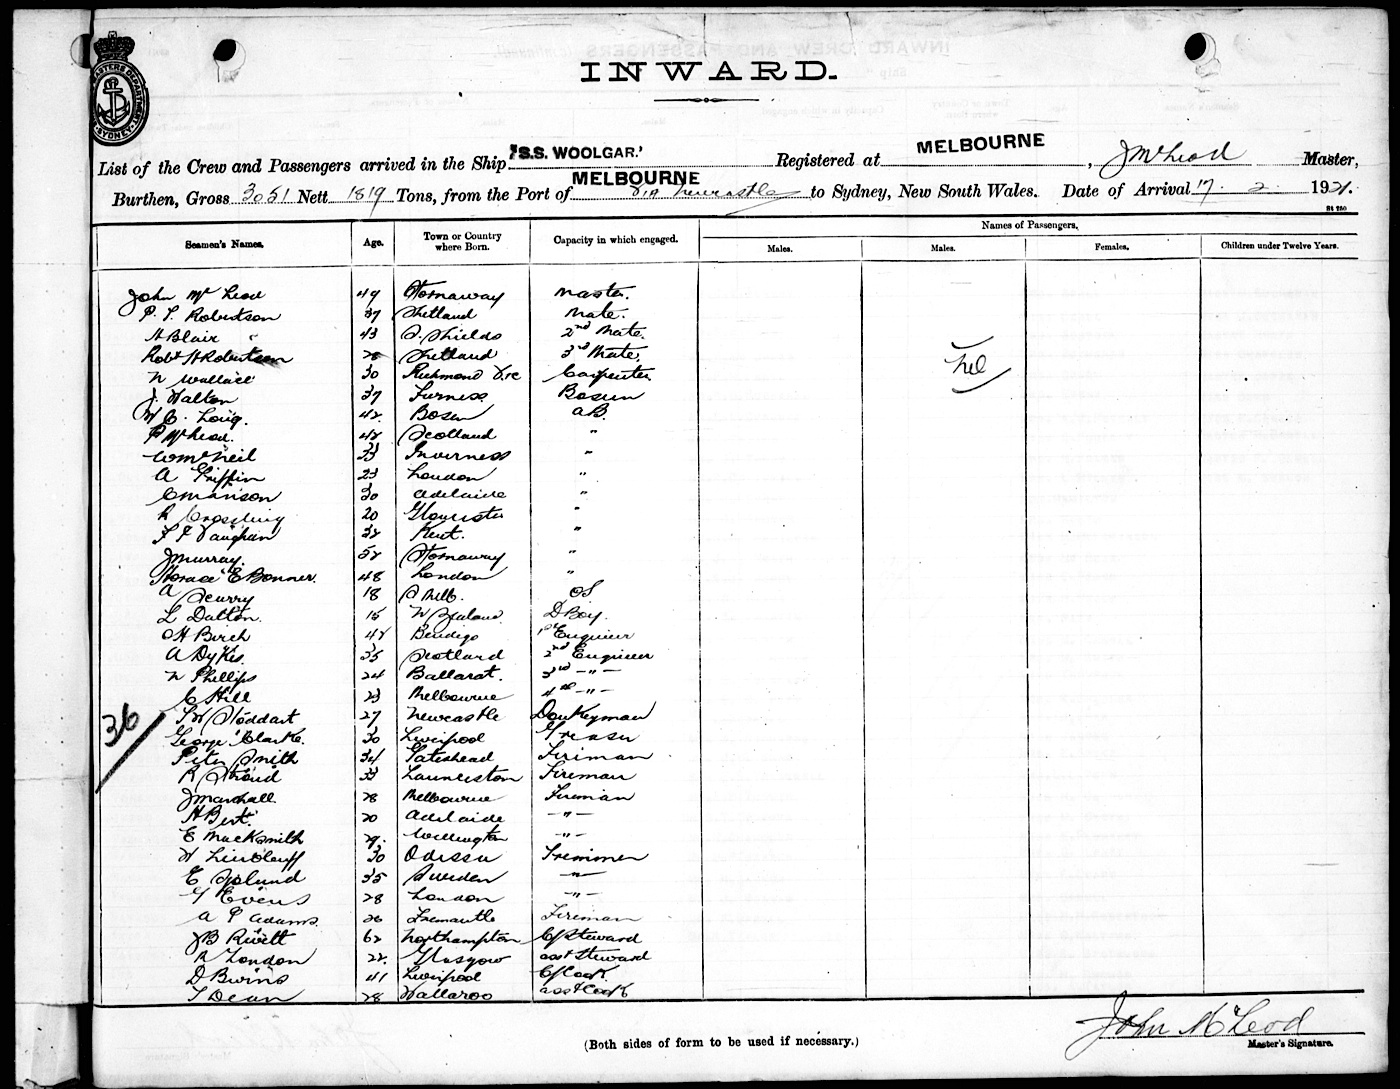 MASTERS DEPARTMENT SYDNEY
INWARD.
List of the Crew and Passengers arrived in the Ship "S.S. WOOLGAR." Registered at MELBOURNE, J McLeod Master,
Burthen, Gross 3051 Nett 1819 Tons, from the Port of MELBOURNE via Newcastle to Sydney, New South Wales. Date of Arrival 17. 2. 1921.
Names of Passengers.
Seamen's Names. Age. Town or Country where Born. Capacity in which engaged. Males. Males. Females. Children under Twelve Years.
John McLeod 49 Stornaway Master.
P. T. Robertson 37 Shetland Mate.
H Blair 43 S. Shields 2nd Mate.
Robt H Robertson 28 Shetland 3rd Mate.
Nil
N Wallace 30 Richmond Vic Carpenter
J. Walton 37 Furness Bosun
W C. Long. 42. AB.
P McLeod. 42 Scotland "
W McNeil 33 Inverness "
A Griffin 23 London "
C Manson 30 Adelaide "
R 20 Gloucester "
F F Vaughan 32 Kent. "
J Murray. 52 Stornaway "
Horace E Bonner. 48 London "
A Scurry 18 S Melb. OS
L Dalton. 15 N Zealand D Boy.
H Birch 42 Bendigo 1st Engineer
A Dykes. 35 Scotland 2nd Engineer
N Phillips 24 Ballarat. 3rd -"-
C Hill 23 Melbourne 4th -"-
36
T W Stoddart 27 Newcastle Donkeyman
George Clarke. 30 Liverpool Greaser
Peter Smith 34 Gateshead Fireman
R Stroud 33 Launceston Fireman
J Marshall. 28 Melbourne Fireman
H Bert. 20 Adelaide -"-
E MackSmith 29. Wellington -"-
W 30 Odessa Trimmer
E 35 Sweden -"-
G Evens 28 London -"-
A P Adams. 26 Fremantle Fireman
J B Rivett 62 Northampton C/Steward
R London 22. Glasgow asst Steward
D Bwins 41 Liverpool C/Cook
T Dean 28 Wallaroo asst Cook
John McLeod
Master's Signature.
(Both sides of form to be used if necessary.)